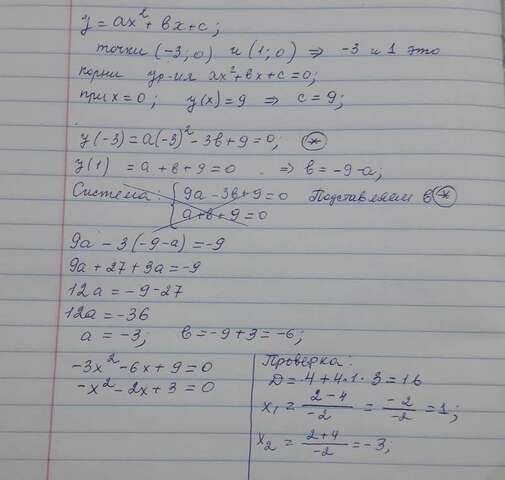 y = ax² + bx + c;
точки (-3; 0) и (1; 0) ⇒ -3 и 1 это
корни ур-ия ax² + bx + c = 0;
при x = 0; y(x) = 9 ⇒ c = 9;
y(-3) = a(-3)² - 3b + 9 = 0; (*)
y(1) = a + b + 9 = 0 ⇒ b = -9 - a;
Система: { 9a - 3b + 9 = 0 Подставляем в (*)
{ a + b + 9 = 0
9a - 3(-9 - a) = -9
9a + 27 + 3a = -9
12a = -9 - 27
12a = -36
a = -3; b = -9 + 3 = -6;
-3x² - 6x + 9 = 0
-x² - 2x + 3 = 0
Проверка:
D = 4 + 4·1·3 = 16
x₁ = (2 - 4)/(-2) = (-2)/(-2) = 1;
x₂ = (2 + 4)/(-2) = -3;